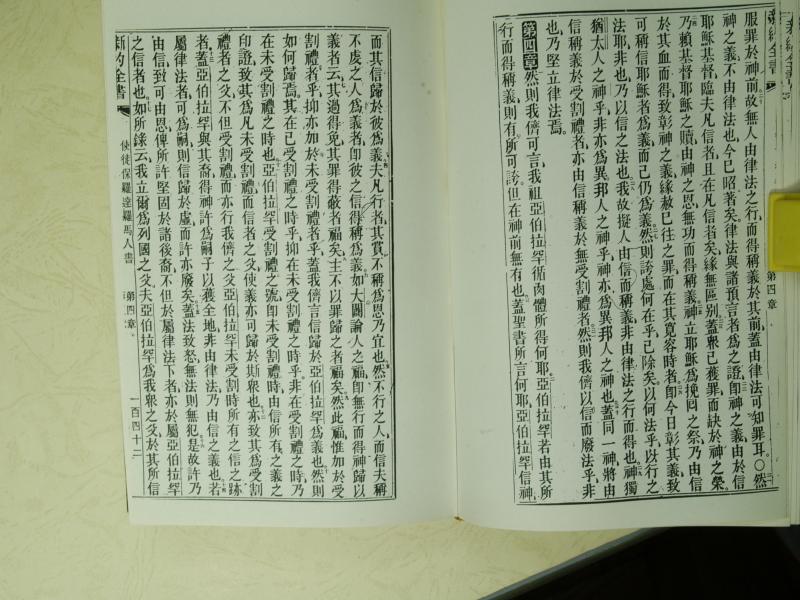 服罪於神前故無人由律法之行而得稱義於其前蓋由律法可知罪耳〇然
神之義不由律法也今已昭著矣律法與諸預言者爲之證卽神之義由於信
耶穌基督臨夫凡信者且在凡信者矣緣無區别蓋衆已獲罪而缺於神之榮
乃賴基督耶穌之贖由神之恩無功而得稱義神立耶穌爲挽回之祭乃由信
於其血而得致彰神之義緣赦已往之罪而在其寬容時者卽今日彰其義致
可稱信耶穌者爲義而己仍爲義然則誇處何在乎已除矣以何法乎以行之
法耶非也乃以信之法也我故擬人由信而稱義非由律法之行而得也神獨
猶太人之神乎非亦爲異邦人之神乎神亦爲異邦人之神也蓋同一神將由
信稱義於受割禮者亦由信稱義於無受割禮者然則我儕以信而廢法乎非
也乃堅立律法焉
第四章 然則我儕可言我祖亞伯拉罕循肉體所得何耶亞伯拉罕若由其所
行而得稱義則有所可誇但在神前無有也蓋聖書所言何耶亞伯拉罕信神
第四章
而其信歸於彼爲義夫凡行者其賞不稱爲恩乃宜也然不行之人而信夫稱
不虔之人爲義者卽彼之信得稱爲義如大闢論人之福卽無行而得神歸以
義者云其過得免其罪得蔽者福矣主不以罪歸之者福矣然此福惟加於受
割禮者乎抑亦加於未受割禮者乎蓋我儕言信歸於亞伯拉罕爲義也然則
如何歸焉其在已受割禮之時乎抑在未受割禮之時乎非在受割禮之時乃
在未受割禮之時也亞伯拉罕受割禮之號卽未受割禮時由信所有之義之
印證致其爲凡未受割禮而信者之父使義亦可歸於斯衆也亦致其爲受割
禮者之父不但受割禮而亦行我儕之父亞伯拉罕未受割時所有之信之跡
者蓋亞伯拉罕與其裔得神許爲嗣于以獲全地非由律法乃由信之義也若
屬律法者可爲嗣則信歸於虛而許亦廢矣蓋法致怒無法則無犯是故許乃
由信致可由恩俾所許堅固於諸後裔不但於屬律法下者亦於屬亞伯拉罕
之信者也如所錄云我立爾爲列國之父夫亞伯拉罕爲我衆之父於其所信
新約全書 使徒保羅達羅馬人書 第四章 一百四十二